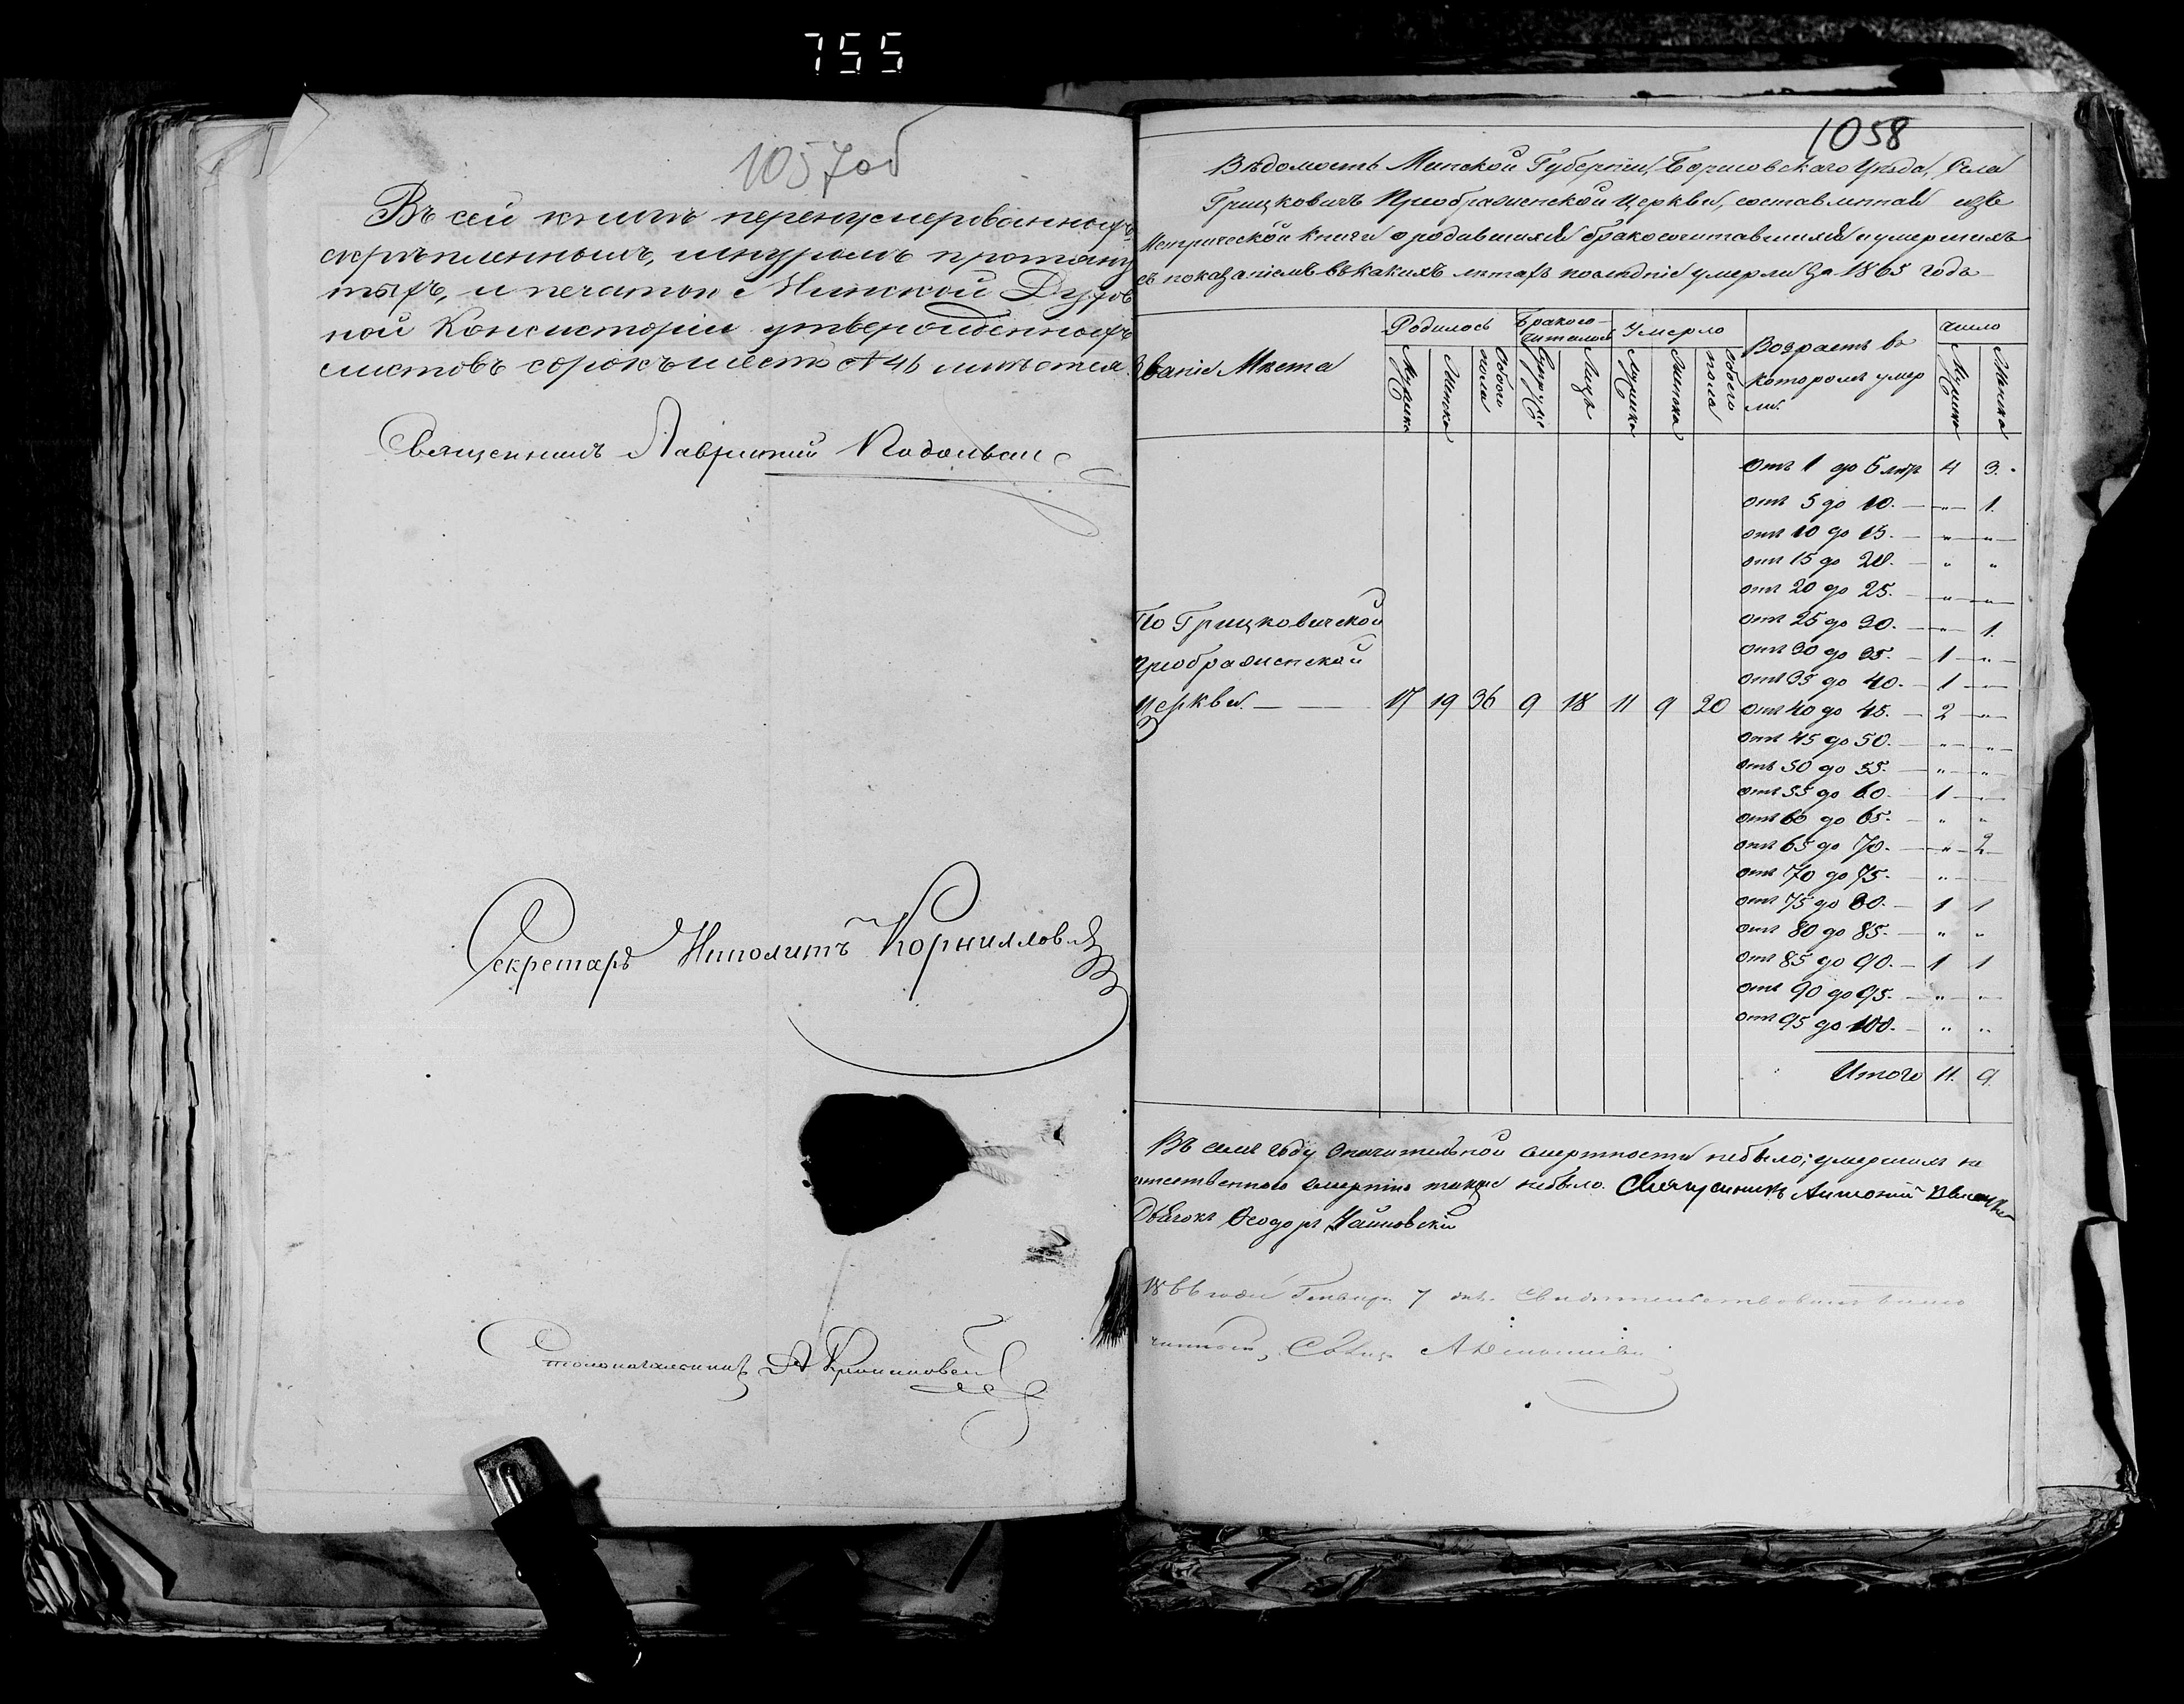 755
1057об
Въ сей книгѣ перенумерованныхъ
скрѣпленныхъ, шнуромъ протяну
тыхъ, и печатью Минской Духов
ной Консисторіи утвержденныхъ
листовъ сорокъ шесть № 46 имѣется
Священникъ Лаврентій
Секретарь Иполитъ Корнилловъ
Столоначальникъ А
1058
Вѣдомость Минской Губерніи, Борисовскаго Уѣзда, Села
Грицковичъ Преображенской Церкви, составленная изъ
Метрической книги о родившихся бракосочитавшихся и умершихъ
съ показаніемъ въ какихъ лѣтахъ послѣдніе умерли за 1865 годъ
Званіе Мѣста
Родилось
Бракосо-
читалось
Умерло
Возрастъ въ
которомъ умер
ли.
число
Мужска
Женска
Обоего пола
Супруже
Лицъ
Мужска
Женска
Обоего пола
Мужска
Женска
Отъ 1 до 5 лѣтъ 4 3.
отъ 5 до 10. — „ — 1.
отъ 10 до 15. — „ — „
отъ 15 до 20. — „ „
отъ 20 до 25. — „ — „
отъ 25 до 30. — „ — 1.
отъ 30 до 35. — 1 — „
отъ 35 до 40. — 1 — „
По Грицковичской
Преображенской
Церкви. — — 17 19 36 9 18 11 9 20
отъ 40 до 45. — 2 — „
отъ 45 до 50. — „ — „
отъ 50 до 55. — „ — „
отъ 55 до 60. — 1 — „
отъ 60 до 65. — „ „
отъ 65 до 70. — „ — 2
отъ 70 до 75. — „ —
отъ 75 до 80. — 1 1
отъ 80 до 85. — „ „
отъ 85 до 90. — 1 1
отъ 90 до 95. — „ — „
отъ 95 до 100. — „ „
Итого 11. 9.
Въ семъ году значительной смертности небыло; умершихъ не
естественною смертію также небыло. Священникъ Антоній
Дьячокъ Ѳеодоръ
1866 года Генваря 7 дня. Свидѣтельствовалъ